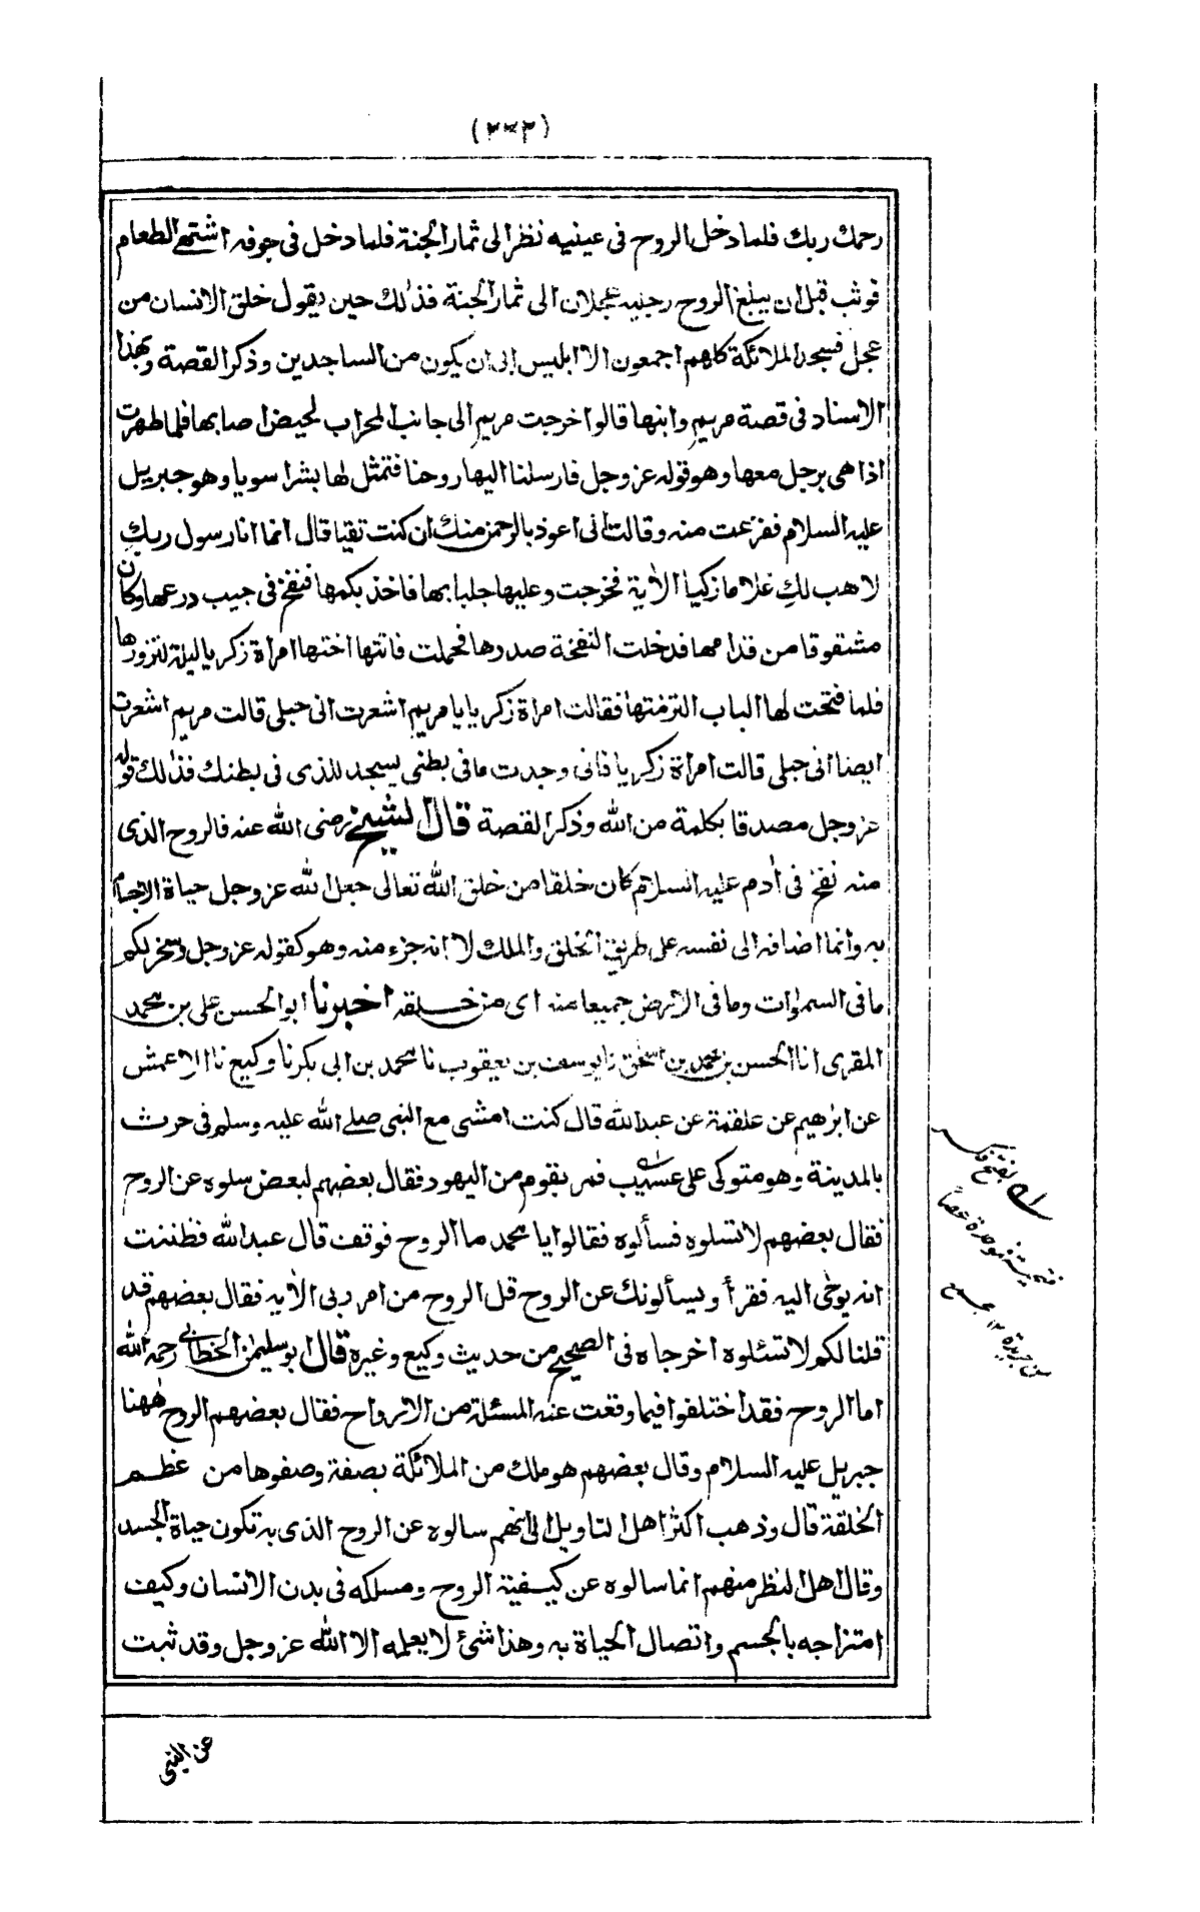 رحمك ربك فلما دخل الروح فى عينيه نظر الى ثمار الجنة فلما دخل فى جوفه اشتهى الطعام
فوثب قبل ان يبلغ الروح رجليه عجلان الى ثمار الجنة فذلك حين يقول خلق الانسان من
عجل فسجد الملائكة كلهم اجمعون الا ابليس ابى ان يكون من الساجدين وذكر القصة وبهذا
الاسناد فى قصة مريم وابنها قالوا خرجت مريم الى جانب المحراب لحيض اصابها فلما طهرت
اذا هى برجل معها وهو قوله عز وجل فارسلنا اليها روحنا فتمثل لها بشرا سويا وهو جبريل
عليه السلام ففزعت منه وقالت انى اعوذ بالرحمن منك ان كنت تقيا قال انما انا رسول ربكِ
لاهب لكِ غلاما زكيا الاٰية فخرجت وعليها جلبابها فاخذ بكمها فنفخ فى جيب درعها وكان
مشقوقا من قدامها فدخلت النفخة صدرها فحملت فاتتها اختها امراة زكريا ليلة لتزورها
فلما فتحت لها الباب التزمتها فقالت امراة زكريا يا مريم اشعرت انى حبلى قالت مريم اشعرت
ايضا انى حبلى قالت امراة زكريا فانى وجدت ما فى بطنى يسجد للذى فى بطنك فذلك قوله
عز وجل مصدقا بكلمة من الله وذكر القصة قال الشيخ رضى الله عنه فالروح الذى
منه نفخ فى اٰدم عليه السلام كان خلقا من خلق الله تعالى جعل الله عز وجل حياة الاجسام
به وانما اضافه الى نفسه على طريق الخلق والملك لا انه جزء منه وهو كقوله عز وجل وسخر لكم
ما فى السمٰوات وما فى الارض جميعا منه اى من خلقه اخبرنا ابو الحسن على بن محمد
المقرى انا الحسن بن محمد بن اسحٰق نا يوسف بن يعقوب نا محمد بن ابى بكر نا وكيع نا الاعمش
عن ابرٰهيم عن علقمة عن عبدالله قال كنت امشى مع النبى صلى الله عليه وسلم فى حرث
بالمدينة وهو متوكى على عسيب فمر بقوم من اليهود فقال بعضهم لبعض سلوه عن الروح
فقال بعضهم لا تسلوه فسألوه فقالوا يا محمد ما الروح فوقف قال عبدالله فظننت
انه يوحٰى اليه فقرأ ويسألونك عن الروح قل الروح من امر ربى الاٰية فقال بعضهم قد
قلنا لكم لا تسئلوه اخرجاه فى الصحيح من حديث وكيع وغيره قال ابو سليمٰن الخطابى رحمه الله
اما الروح فقد اختلفوا فيما وقعت عنه المسئلة من الارواح فقال بعضهم الروح هٰهنا
جبريل عليه السلام وقال بعضهم هو ملك من الملائكة بصفة وصفوها من عظم
الخلقة قال وذهب اكثر اهل التاويل الى انهم سالوه عن الروح الذى به تكون حياة الجسد
وقال اهل النظر منهم انما سالوه عن كيفية الروح ومسلكه فى بدن الانسان وكيف
امتزاجه بالجسم واتصال الحياة به وهذا شئ لا يعلمه الا الله عز وجل وقد ثبت
عن النبى